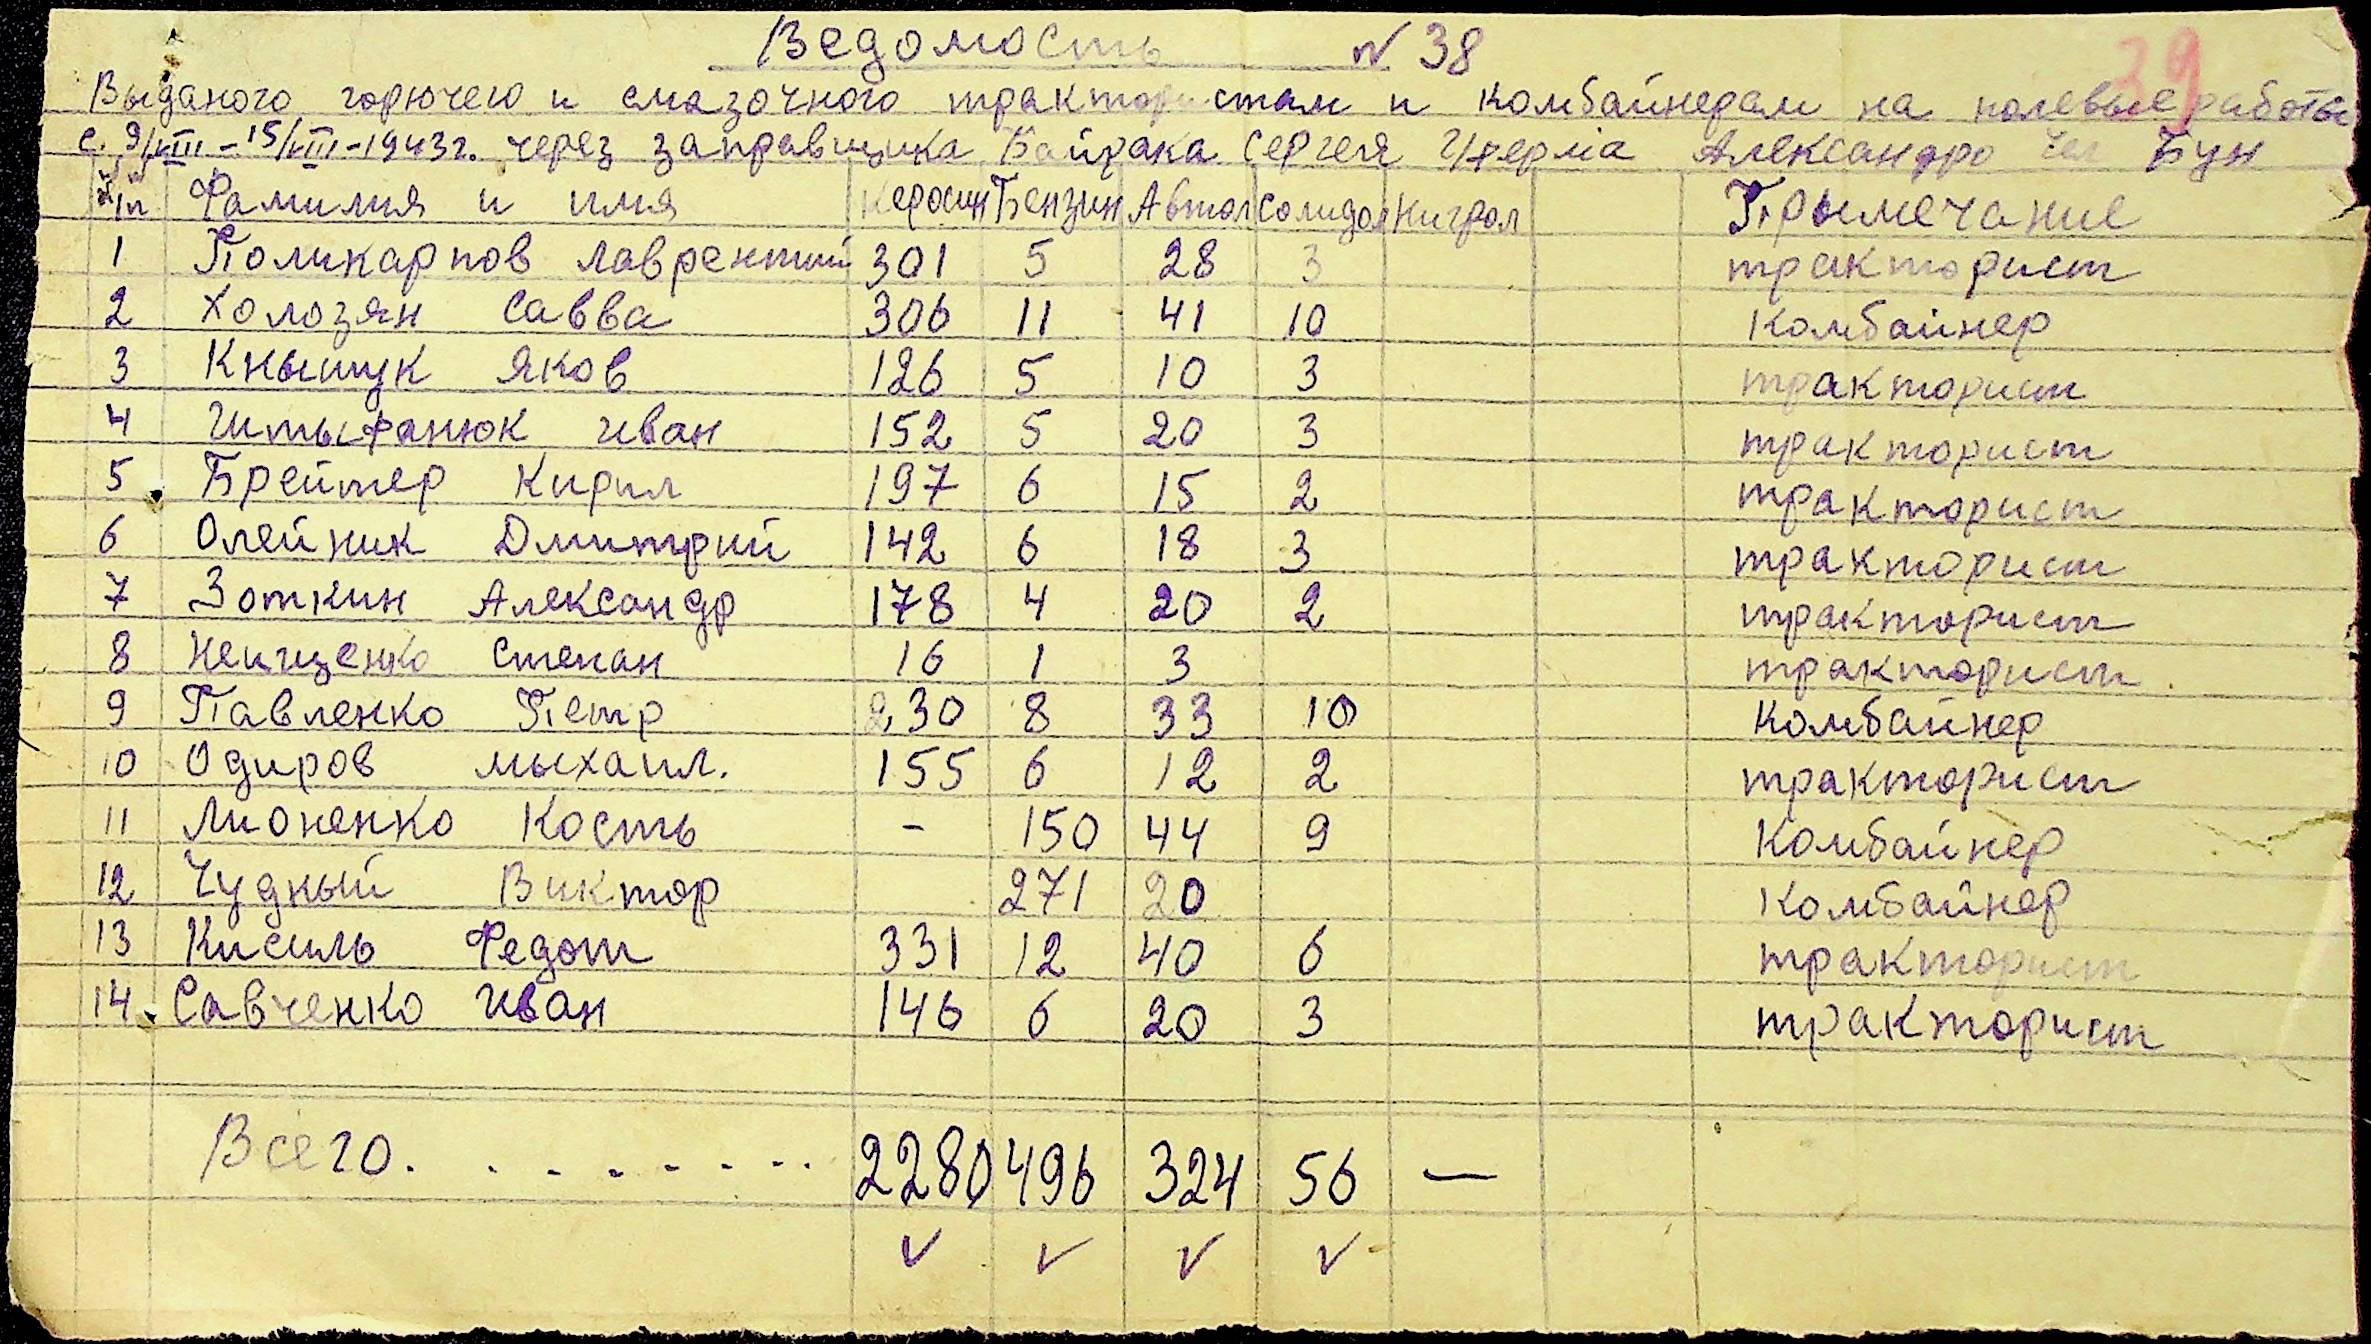 Ведомость № 38
39
Выданого горючего и смазочного трактористам и комбайнерам на полевые работы
с. 9/VIII – 15/VIII – 1943 г. через заправщика Байрака Сергея Александро Бун
Фамилия и имя Керосин Бензин Автол Солидол Нигрол Прымечание
1 Поликарпов Лаврентий 301 5 28 3 тракторист
2 Холозян Савва 306 11 41 10 Комбайнер
3 Кнышук Яков 126 5 10 3 тракторист
4 Штыфанюк Иван 152 5 20 3 тракторист
5 Брейтер Кирил 197 6 15 2 тракторист
6 Олейник Дмитрий 142 6 18 3 тракторист
7 Зоткин Александр 178 4 20 2 тракторист
8 Степан 16 1 3 тракторист
9 Павленко Петр 230 8 33 10 Комбайнер
10 Одиров мыхаил. 155 6 12 2 тракторист
11 Лионенко Кость – 150 44 9 Комбайнер
12 Чудный Виктор 271 20 Комбайнер
13 Кисиль Федот 331 12 40 6 тракторист
14. Савченко Иван 146 6 20 3 тракторист
Всего. . . . . . . . . 2280 496 324 56 —